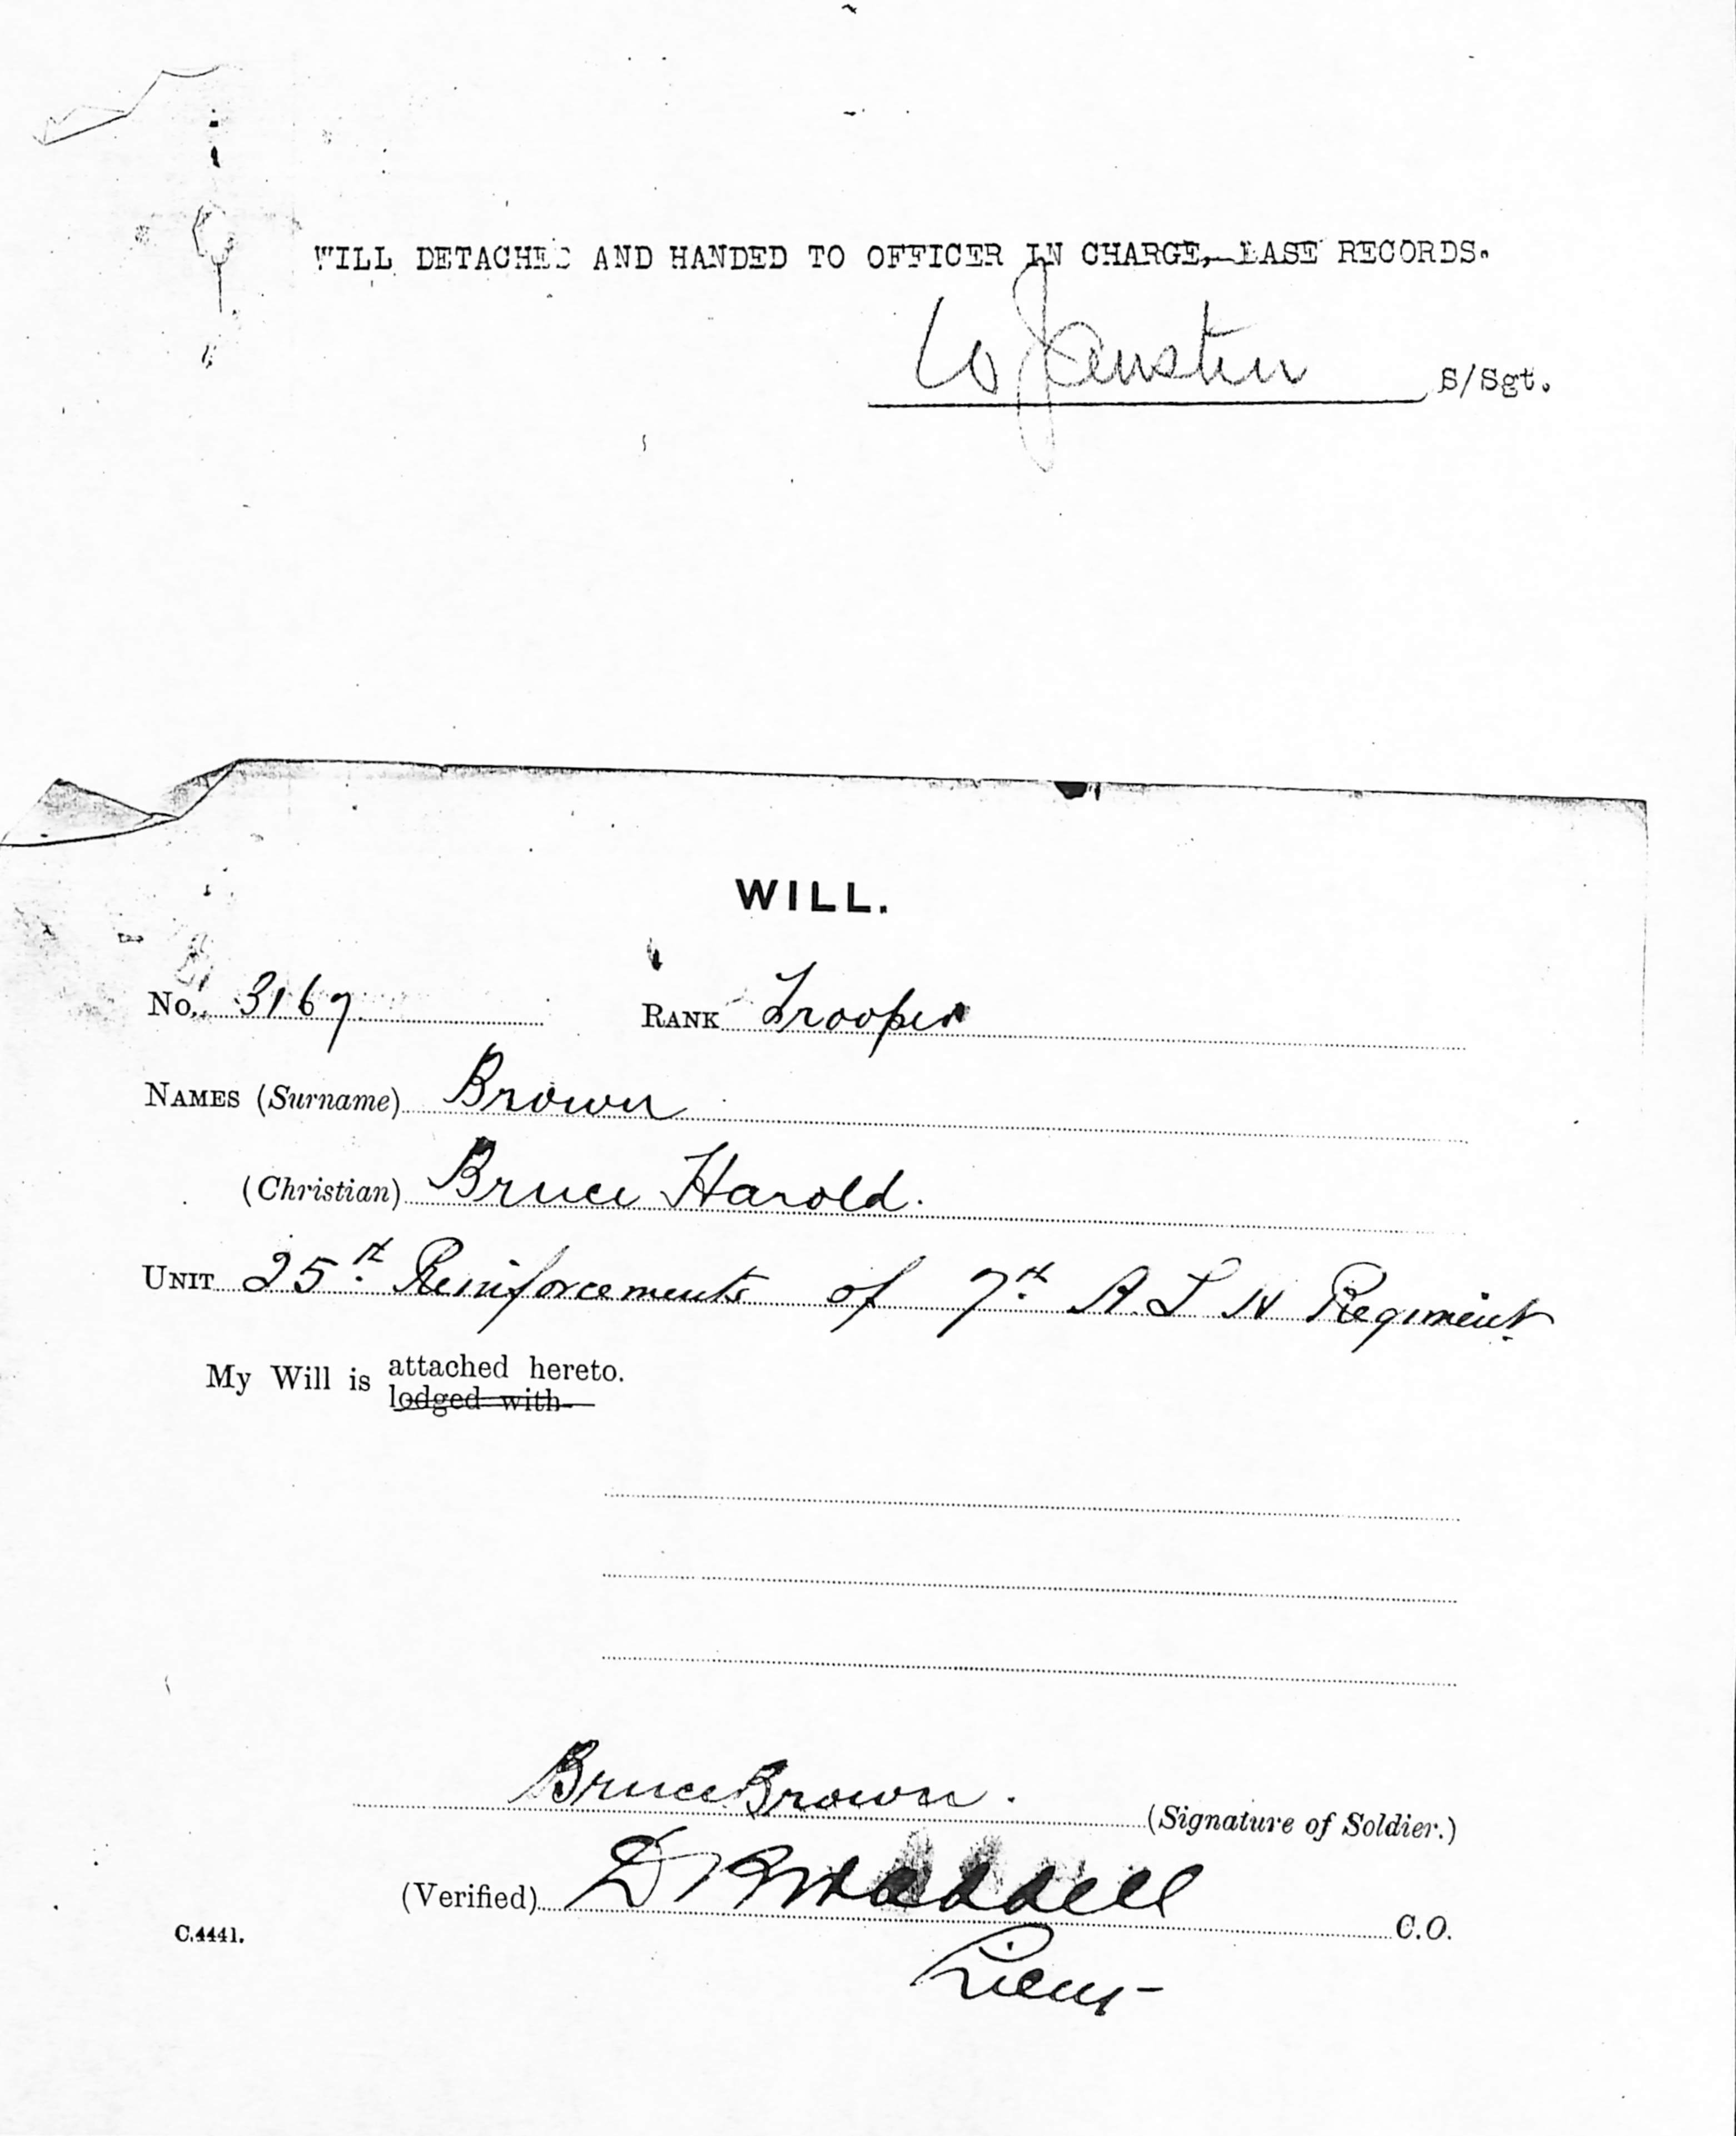 WILL DETACHED AND HANDED TO OFFICER IN CHARGE, BASE RECORDS.
S/Sgt.
WILL.
No. 3167 RANK Trooper
NAMES (Surname) Brown
(Christian) Bruce Harold.
UNIT 25th Reinforcements of 7th A L H Regiment
My Will is attached hereto.
lodged with
Bruce Brown. (Signature of Soldier.)
(Verified) C.O.
C.4441.
Lieut